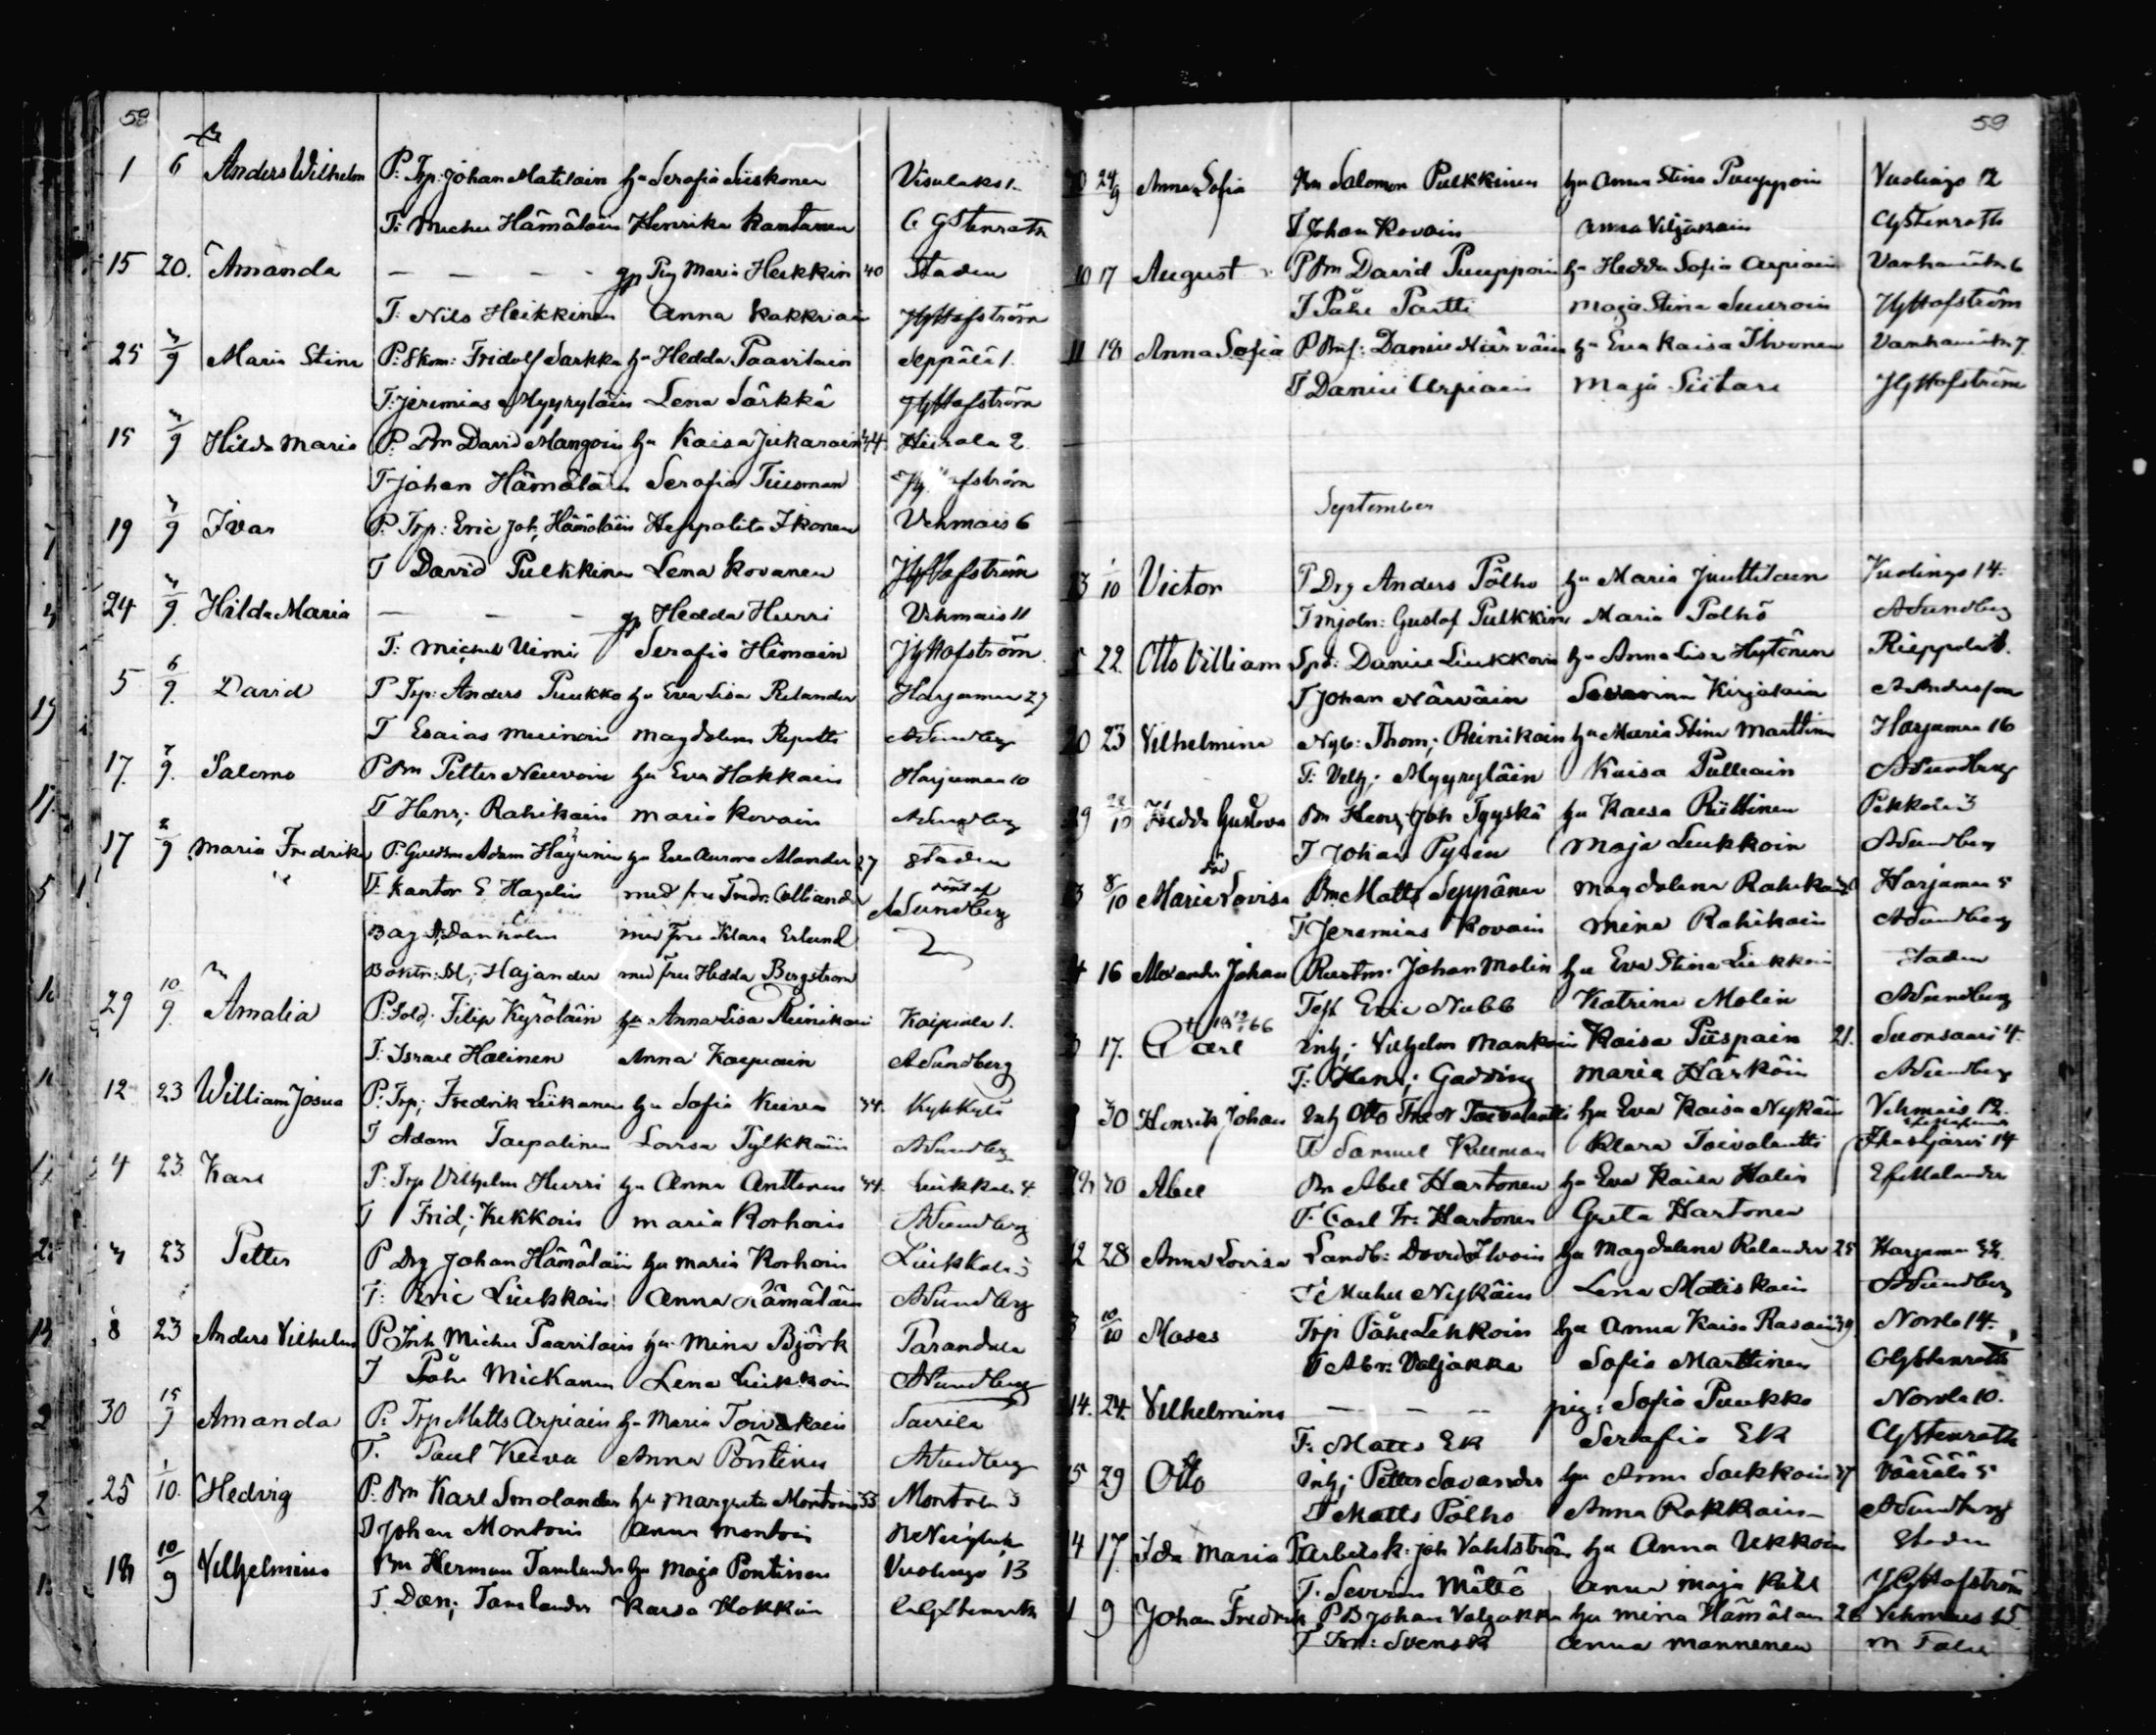 58
1 6 Anders Wilhelm P: Trp: Johan Matilain hu Serafia Siiskonen Visulaks 1.
T: Michel Hämäläin Henrika Kantanen C G Stenrath
15 20. Amanda — — — gp Pig Maria Heikkin 40 Staden
T: Nils Heikkinen Anna Kakkriain J G Hofström
25 9 Maria Stina P: Skom: Fridolf Sarkka hu Hedda Paavilain Seppälä 1.
T: Jeremias Myyryläin Lena Särkkä J G Hofström
15 9 Hilda Maria P: Bm David Mangoin hu Kaisa Jukarain 44 Hiirola 2
T Johan Hämäläin Serafia Tiusman
19 9 Ivar P. Trp: Eric Joh, Hämäläin Heppolita Ikonen Vehmais 6
T David Pulkkinen Lena Kovanen J G Hofström
24 9. Hilda Maria — — — gp Hedda Hurri Vehmais 11
T: Michel Uimi Serafia Himain J G Hofström
5 6/9. David P Trp: Anders Puukko hu Eva Lisa Relander Harjumaa 27
T Esaias Muinoin Magdalena Reputti A Sundberg
17. 7/9. Salomo P Bm Petter Neuvoin hu Eva Hokkain Harjumaa 10
T Henr; Rahikain Maria Kovain A Sundberg
17 9 Maria Fredrika P. Guldsm Adam Häyrinen hu Eva Aurora Alander 27 Staden
T. Kantor E Hagelin med fru Fredr. Colliander A Sundberg
Bag A, Danholm med fru Klara Erlund
Boktr: M; Hajander med fru Hedda Bergstrom
29 10/9. Amalia P. Sold; Filip Kyröläin hu Anna Lisa Reinikain Kaipiala 1.
T: Israel Halinen Anna Kaipiain A Sundberg
12 23 William Josua P: Trp; Fredrik Liikanen hu Sofia Kurva 34. Kyhkylä
T Adam Taipalinen Lovisa Pylkkäin A Sundberg
4 23 Karl P: Trp Vilhelm Hurri hu Anna Anttonen 34. Liukkola 4
T Frid; Kekkoin Maria Korhoin A Sundberg
23 Petter P Drg Johan Hämäläin hu Maria Korhoin Liukkola 5
T: Eric Liukkoin Anna Hämäläin A Sundberg
8 23 Anders Vilhelm P. Inh Michel Paavilain hu Mina Björk Parandala
T Påhl Mickanen Lena Liukkoin A Sundberg
30 15/9 Amanda P: Trp Matts Arpiain hu Maria Toivakain Savila
T. Paul Kurva Anna Pöntinen A Sundberg
25 1/10 Hedvig P. Bm Karl Smolander hu Margreta Montoin 33 Montola 3
T Johan Montoin Anna Montoin
18 10/9 Vilhelmina Bm Herman Tamlander hu Maja Pontinen Vuolingo 13
T. Dan; Tamlander Kaisa Hokkin C G Stenrath
59
24/9 Anna Sofia Bm Salomon Pulkkinen hu Anna Stina Puuppoin Vuolingo 12
T Johan Kovain Anna Viljakain C G Stenrath
10 17 August P Bm David Puuppoin hu Hedda Sofia Arpiain Vanhamäki 6
T Påhl Partti Maja Stina Suuroin J G Hofström
11 18 Anna Sofia P Bmf: Daniel Närväin hu Eva Kaisa Ihvonen Vanhamäki 7.
T Daniel Arpiain Maja Siitari J G Hofström
September
13 1/10 Victor P Drg Anders Pölho hu Maria Juuttilain Vuolingo 14.
T mjoln: Gustaf Pulkkin Maria Polhö A Sundberg
22 Otto Villiam Spb: Daniel Liukkoin hu Anna Lisa Hytönen Rieppola
T Johan Närväin Severina Kirjalain A Andersson
20 23 Vilhelmina Nyb: Thom; Reinikain hu Maria Stina Marttinen Harjumaa 16
T: Velh; Myyryläin Kaisa Pulliain A Sundberg
29 28/10 Hedda Gustava Bm Henr; Joh Tyyskä hu Kaisa Rüttinen Pekkola 3
T Johan Pyrén Maja Liukkoin A Sundberg
död
8/10 Maria Lovisa Bm Matts Seppänen Magdalena Rahikain Harjumaa 5
T Jeremias Kovain Mina Rahikain A Sundberg
4 16 Alexander Johan Rustm. Johan Molin hu Eva Stina Liukkoin Staden
Eric Nubb Katrina Molin A Sundberg
17. Carl Inh; Vilhelm Mankoin Kaisa Piispain 21. Suonsaari 4.
T: Henr; Gadding Maria Härköin A Sundberg
30 Henrik Johan Inh Otto Fredr Toivolautti hu Eva Kaisa Nykäin Vehmais 12.
T Samuel Kullman Klara Toivolautti Ihastjärvi 14
30 Abel Bm Abel Hartonen hu Eva Kaisa Halin
T. Carl Fr: Hartonen Greta Hartonen
12 28 Anna Lovisa Landb: David Ilvoin hu Magdalena Relander 25 Harjumaa
T Michel Nykäin Lena Matiskain A Sundberg
10/10 Moses Trp Påhl Lehkoin hu Anna Kaisa Rasain 39 Norola 14.
T Abr: Valjakka Sofia Marttinen C G Stenrath
14. 24. Vilhelmina — — — pig: Sofia Puukko Norola 10.
T: Matts Ek Serafia Ek C G Stenrath
15 29 Otto Inh; Petter Savander hu Anna Saukkoin 37 Väärälä 5
T Matts Pölho Anna Rokkain A Sundberg
4 17. Ida Maria P arbetsk: Joh Vahlström hu Anna Ukkoin Staden
T. Severin Mättö Anna Maja Kihl J G Hofström
1 9 Johan Fredrik P B Johan Valjakka hu Mina Hämäläin Vehmais 15.
T Fr: Svensk Anna Mannenen